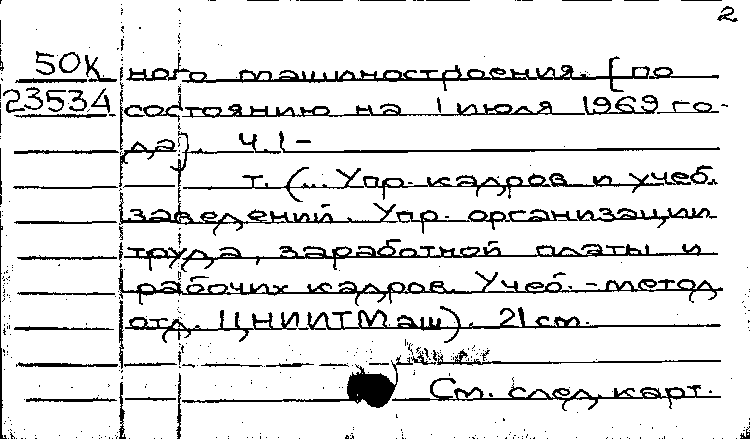 2
50К ного машиностроения. [по
23534 состоянию на 1 июля 1969 го-
да]. Ч. 1-
т. (... Упр. кадров и учеб.
заведений. Упр. организации
труда, заработной платы и
рабочих кадров. Учеб.-метод.
отд. ЦНИИТМаш). 21 см.
См. след. карт.